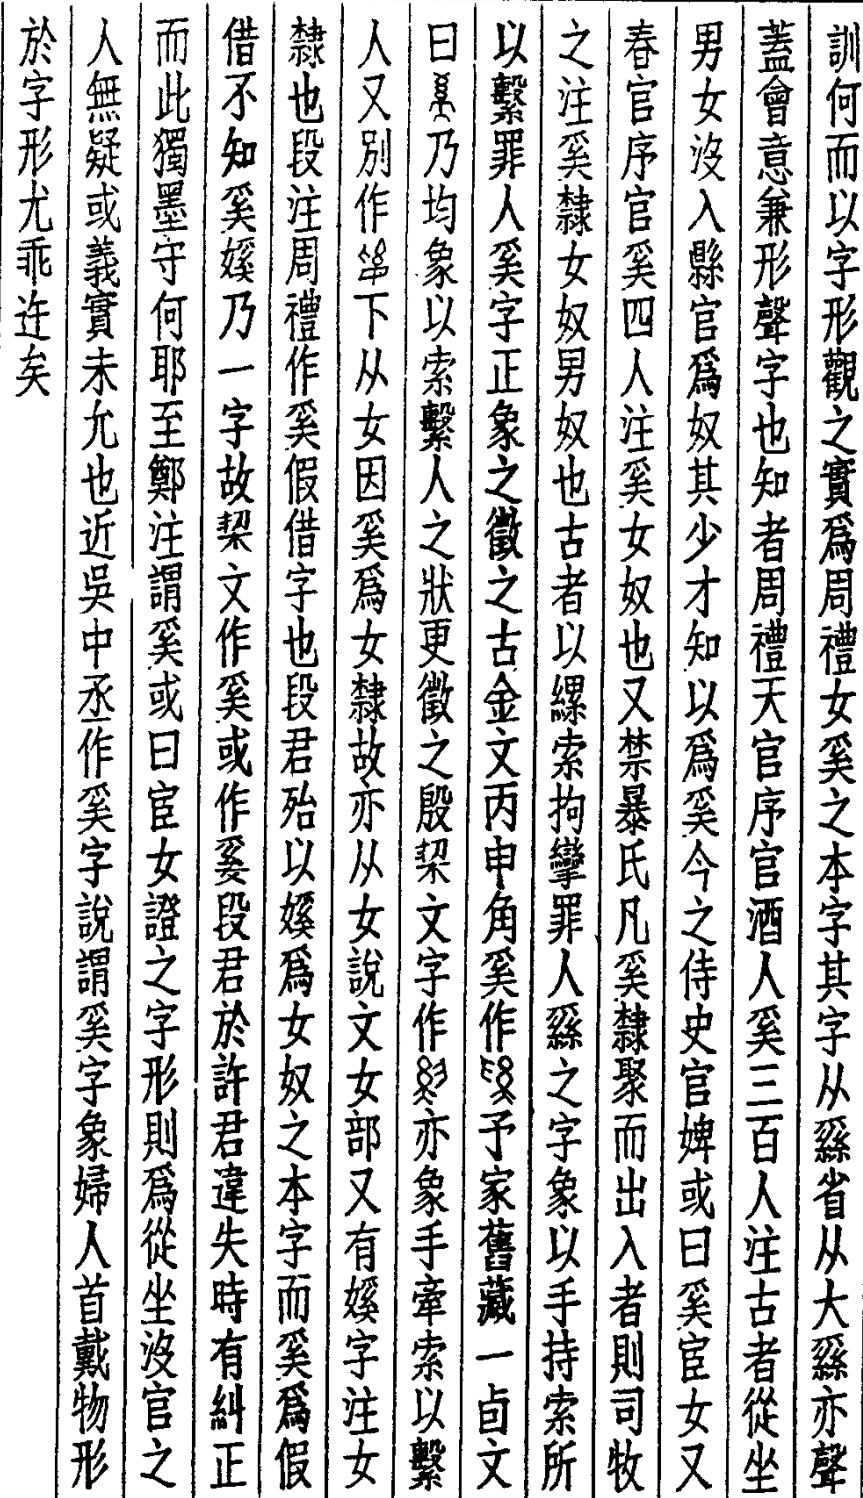 訓何而以字形觀之實爲周禮女奚之本字其字从繇省从大繇亦聲
蓋會意兼形聲字也知者周禮天官序官酒人奚三百人注古者從坐
男女沒入縣官爲奴其少才知以爲奚今之侍史官婢或曰奚宦女又
春官序官奚四人注奚女奴也又禁暴氏凡奚隸聚而出入者則司牧
之注奚隸女奴男奴也古者以縲索拘攣罪人繇之字象以手持索所
以繫罪人奚字正象之徵之古金文丙申角奚作予家舊藏一卣文
曰乃均象以索繫人之狀更徵之殷栔文字作亦象手牽索以繫
人又別作下从女因奚爲女隸故亦从女說文女部又有㜎字注女
隸也段注周禮作奚假借字也段君殆以㜎爲女奴之本字而奚爲假
借不知奚㜎乃一字故栔文作奚或作段君於許君違失時有糾正
而此獨墨守何耶至鄭注謂奚或曰宦女證之字形則爲從坐沒官之
人無疑或義實未允也近吳中丞作奚字說謂奚字象婦人首戴物形
於字形尤乖迕矣